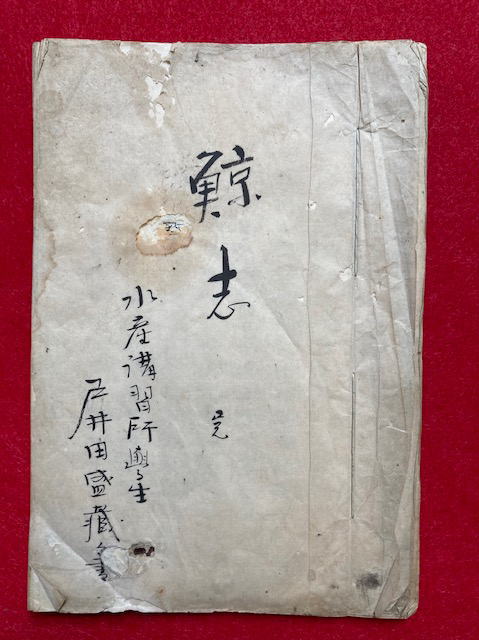 鯨志
完
水産講習所生
戸井田盛藏書